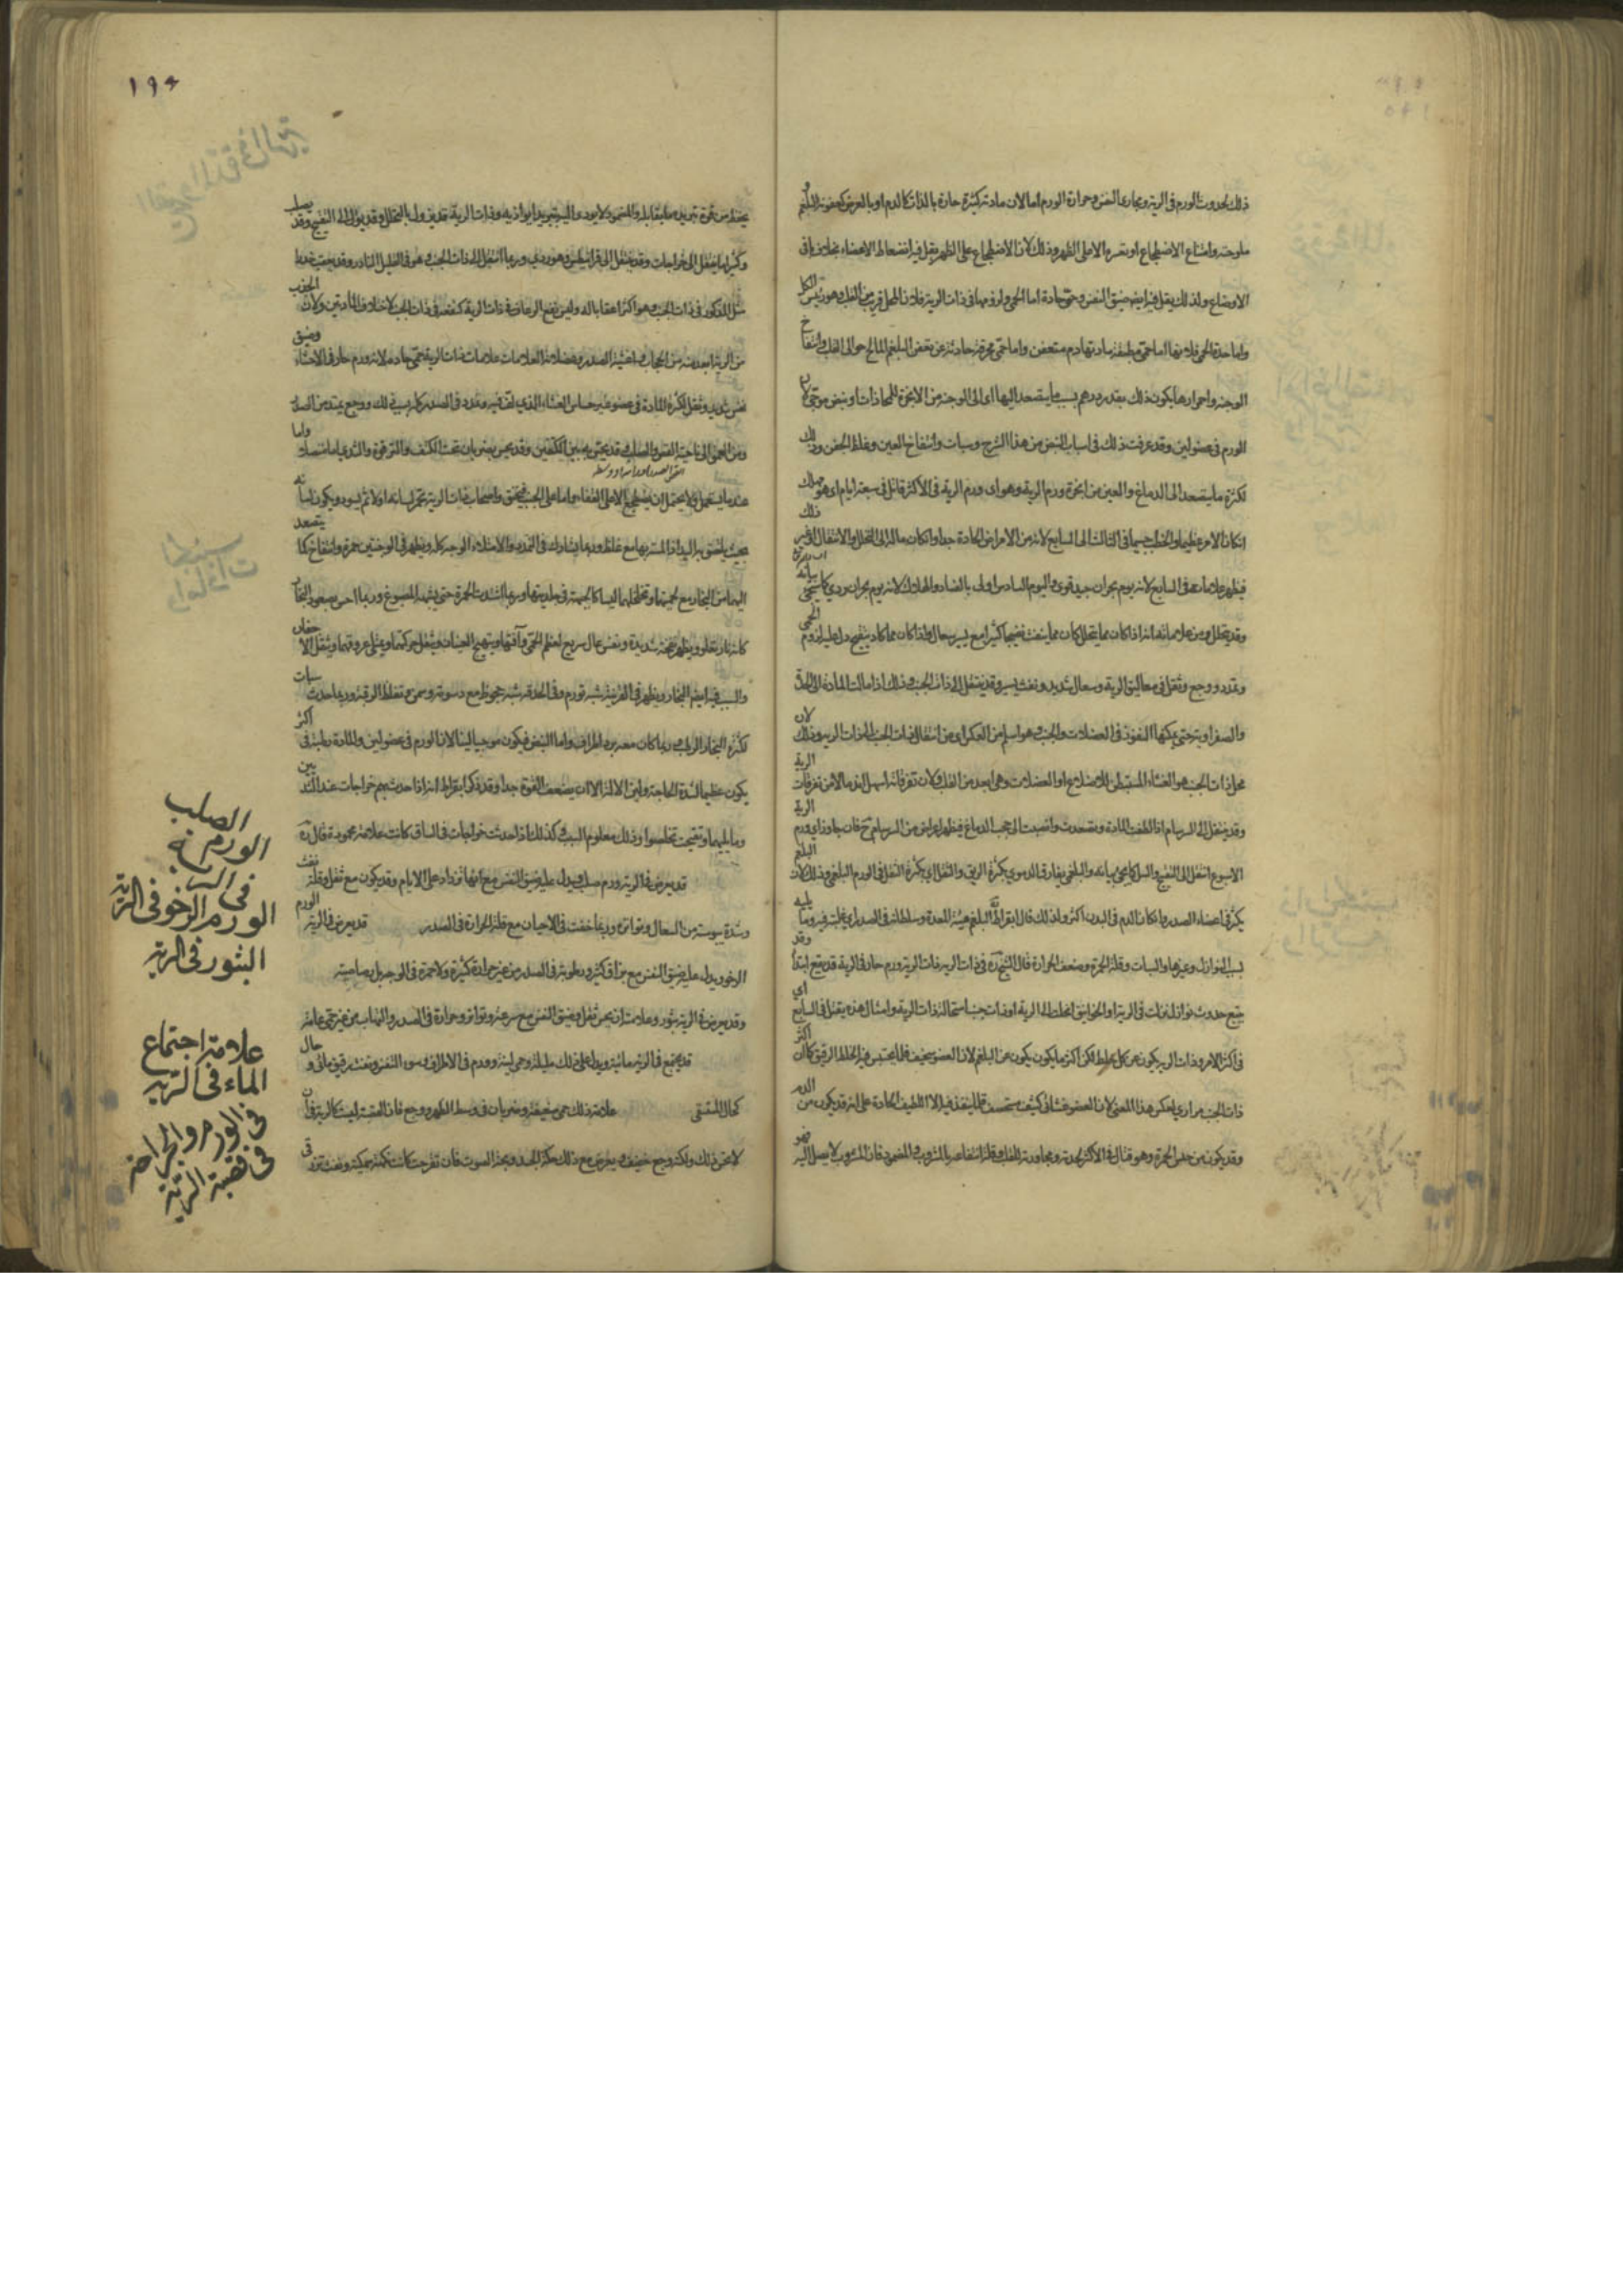 ذلك لحدوث الورم فى الرية ومجارى النفس وحرارة الورم اما لان مادته كثيرة حارة بالذات كالدم او بالعرض كعفونة البلغم
ملوحته وامتناع الاضطجاع او تعسره الا على الظهر وذلك لان الاضطجاع على الظهر يقل فيه انضغاط الاعضاء بخلاف باقى
الاوضاع ولذلك يقل فيه ايضا ضيق النفس وحمى حادة اما الحمى ولزومها فى ذات الرية فلان المحل قريب من القلب وهو رئيس الكل
واما حدة الحمى فلانها اما حمى مطبقة مادتها دم متعفن واما حمى محرقة حادثة عن تعفن البلغم المالح حوالى القلب وانتفاخ
الوجنة واحمرارها يكون ذلك بقدر درهم بسبب ما يتصعد اليها اى الى الوجنة من الابخرة للمحاذات ونبض موجى لان
الورم فى عضو لين وقد عرفت ذلك فى اسباب النبض من هذا الشرح وسبات وانتفاخ العين وغلظ الجفن وذلك
لكثرة ما يتصعد الى الدماغ والعين من ابخرة ورم الرية وهو اى ورم الرية فى الاكثر قاتل فى سبعة ايام اى هو مهلك
ان كان الامر عظيما والخطب جسيما فى الثالث الى السابع لانه من الامراض الحادة جدا وان كان ماله الى التحلل والانتقال او غير ذلك
فيظهر علاماته فى السابع لانه يوم بحران جيد قوى واليوم السادس اولى بالفساد والهلاك لانه يوم بحران ردى كما سيجى بيانه
وقد يتحلل
وتمدد ووجع وثقل فى معاليق الرية وسعال شديد ونفث يسير وقد ينتقل الى ذات الجنب وذلك اذا مالت المادة الى الحدة
والصفراوية حتى يمكنها النفوذ فى العضلات والجنب وهو اسلم من العكس اى من انتقال ذات الجنب الى ذات الرية وذلك لان
محل ذات الجنب هو الغشاء المستبطن للاضلاع او العضلات وهى ابعد من القلب ولان تفرقاته اسهل اندمالا من تفرقات الرية
وقد ينتقل الى السرسام اذا لطفت المادة وتصعدت وانصبت الى حجب الدماغ فيظهر اعراض من السرسام فان جاوز اى ورم الرية
الاسبوع انتقل الى التقيح والسل كما يجى بيانه والبلغمى يفارق الدموى بكثرة الريق والثقل اى بكثرة الثقل فى الورم البلغمى وذلك لان البلغم
يكثر فى اعضاء الصدر وما كان الدم فى البدن اكثر ولذلك قال ابقراط البلغم بيته المعدة وسلطانه فى الصدر اى غلبته فيه وما يليه
بسبب النوازل وغيرها والسبات وقلة الحمرة وضعف الحرارة قال الشيخ فى ذات الرية ذات الرية ورم حار فى الرية قد يقع ابتداء وقد
يتبع حدوث نوازل نزلت فى الرية او الخوانيق انحلت الى الرية او ذات جنب استحالت ذات الرية وامثال هذه يقتل فى السابع اى
فى اكثر الامر وذات الرية يكون عن كل خلط لكن اكثر ما يكون يكون عن البلغم لان العضو سخيف قلما يحتبس فيه الخلط الرقيق كما ان اكثر
ذات الجنب مرارى لعكس هذا المعنى لان العضو غشائى كثيف مستحصف قلما ينفذ فيه الا اللطيف الحاد على انه قد يكون من الدم
وقد يكون من جنس الحمرة وهو قتال فى الاكثر لحدته ومجاورته للقلب وقلة انتفاعه بالمشروب والمضمود فان المشروب لا يصل اليه فهو
١٩٤
وكثيرا ما ينتقل الى خراجات وقد ينتقل الى قرانيطس وهو ردى وربما انتقل الى ذات الجنب وهو فى القليل النادر وقد يعقب خدرا
مثل المذكور فى ذات الجنب وهو اكثر اعقابا له وليس نفع الرعاف فى ذات الرية كنفعه فى ذات الجنب لاختلاف المادتين ولان الجذب
من الرية ابعد منه من الحجاب واغشية الصدر وعضلاته العلامات علامات ذات الرية حمى حادة لانه ورم حار فى الاحشاء وضيق
نفس شديد وثقل لكثرة المادة فى عضو غير حساس الغشاء الذى لف فيه وتمدد فى الصدر كله بسبب ذلك ووجع يمتد من الصدر
ومن العمق الى ناحية القص والصلب وقد يحس به بين الكتفين وقد يحس بضربان تحت الكتف والترقوة والثدى اما متصلا واما
عندما يسعل ولا يحتمل ان يضطجع الا على القفا واما على الجنب فيختنق واصحاب ذات الرية تحمر لسانه اولا ثم يسود ويكون لسانه
بحيث يلصق به اليد اذا لمسته بها مع غلظ وربما يشارك فى التمدد والامتلاء الوجه كله ويظهر فى الوجنتين حمرة وانتفاخ كما يتصعد
اليهما من البخار مع لحميتهما وتخلخلهما ليسا كالجبهة فى جلديتها وربما اشتدت الحمرة حتى يشبه المصبوغ وربما احس بصعود البخار
كانه نار تعلو ويظهر نفخة شديدة ونفس عال سريع لعظم الحمى وآفتها ويتهيج العينان ويثقل حركتهما ويمتلى عروقهما ويثقل الاجفان
والسبب فيه ايضا البخار ويظهر فى القرنية شبه تورم وفى الحدقة شبه جحوظ مع دسومة وسمن وتغلظ الرقبة وربما حدث سبات
لكثرة البخار الرطب وربما كان معه برد اطراف واما النبض فيكون موجيا لينا لان الورم فى عضو لين والمادة رطبة فى اكثر
يكون عظيما لشدة الحاجة ولين الآلة الا ان يضعف القوة جدا وقد ذكر ابقراط انه اذا حدث بهم خراجات عند الثدى بين
وما يليهما وتقيحت تخلصوا وذلك معلوم السبب وكذلك اذا حدثت خراجات فى الساق كانت علامة محمودة قال
قد يعرض فى الرية ورم صلب ويدل عليه ضيق النفس مع انها تزداد على الايام وقد يكون مع ثقل وقلة نفث
وشدة يبوسة من السعال وتواتره وربما خفت فى الاحيان مع قلة الحرارة فى الصدر قد يعرض فى الرية الورم
الرخو ويدل عليه ضيق النفس مع بزاق كثير ورطوبة فى الصدر من غير حرارة كثيرة ولا حمرة فى الوجه بل رصاصية
وقد يعرض فى الرية بثور وعلامته ان يحس ثقل وضيق النفس مع سرعة وتواتر وحرارة فى الصدر والتهاب من غير حمى عامة
قد يجتمع فى الرية مائية ويدل على ذلك مليلة وحمى لينة وورم فى الاطراف وسوء التنفس ونفث رقيق مائى وحال
كحال المستسقى علامة ذلك حمى ضعيفة وضربان فى وسط الظهر ووجع فان القصبة ليست كالرية فى ان
لا تحس ذلك ولكنه وجع خفيف ويعرض مع ذلك حكة الجسد وبحة الصوت فان تقرحت كانت نكهة سمكية ونفث نزر
الصلب
الورم
فى الرية
الورم الرخو فى الرية
البثور فى الرية
علامة اجتماع
الماء فى الرية
فى الورم والجراحة
فى قصبة الرية